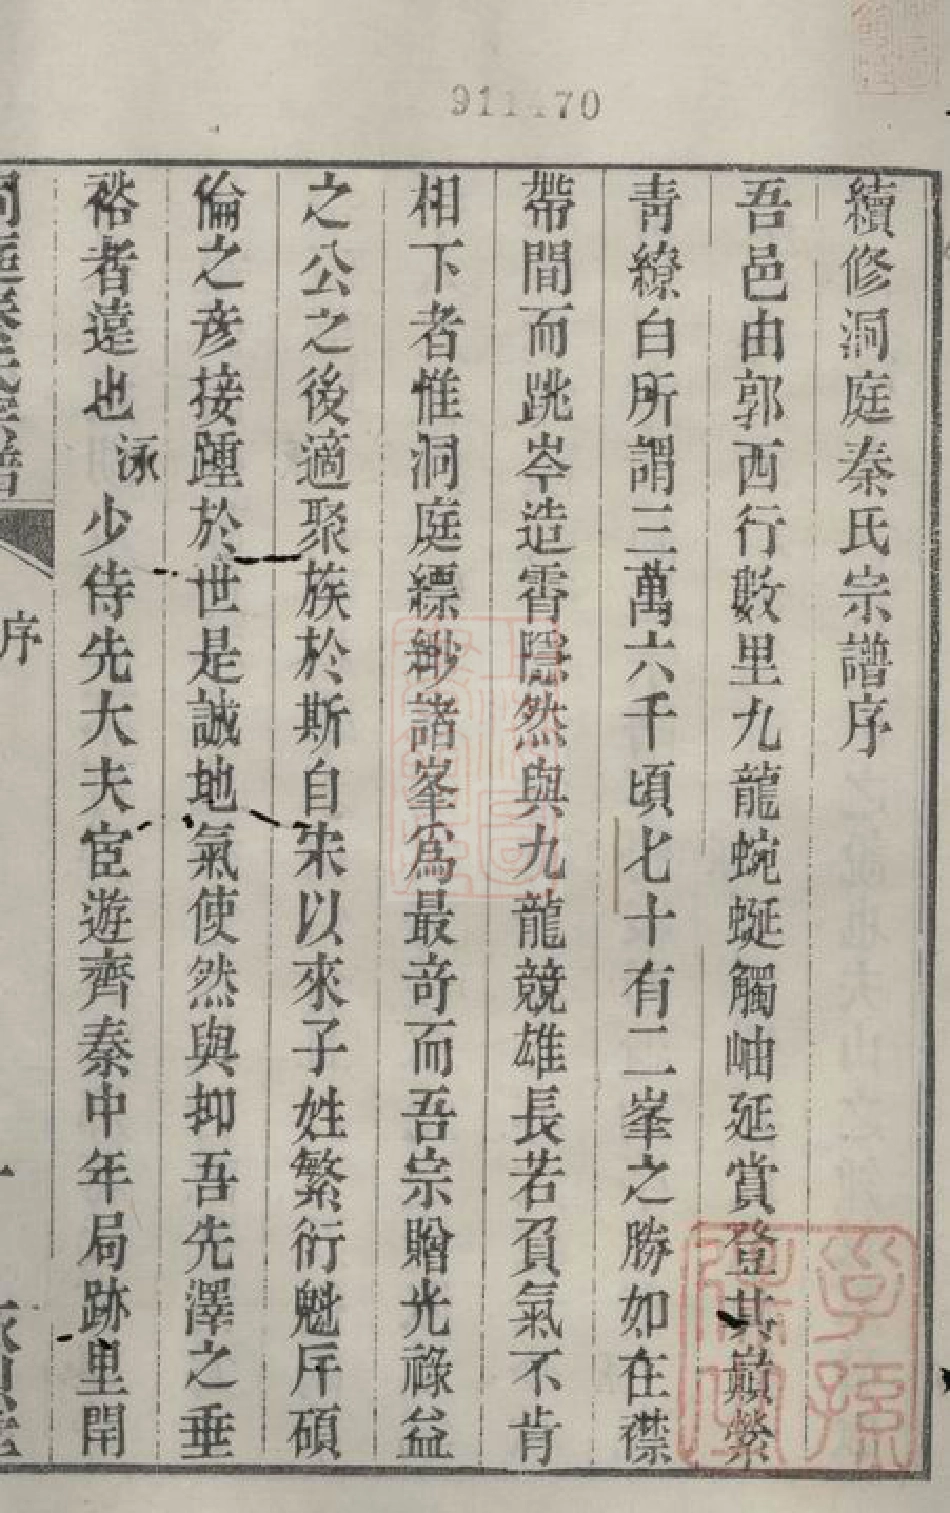 911470
續修洞庭秦氏宗譜序
吾邑由郭西行數里九龍蜿蜒觸岫延賞登其巔縈
青繚白所謂三萬六千頃七十有二峯之勝如在襟
帶間而跳岑造霄隱然與九龍競雄長若負氣不肯
相下者惟洞庭縹緲諸峯爲最奇而吾宗贈光祿益
之公之後適聚族於斯自宋以來子姓繁衍魁厈碩
倫之彥接踵於世是誠地氣使然與抑吾先澤之垂
裕者遠也 泳 少侍先大夫宦遊齊秦中年局跡里閈
洞庭秦氏宗譜
序
一